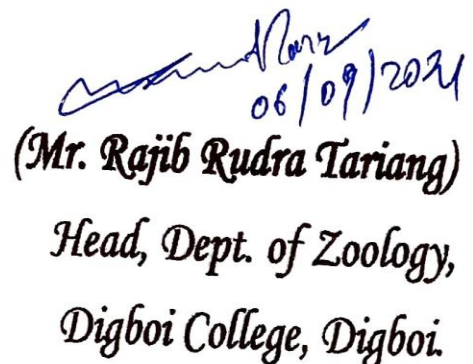 06/09/2021
(Mr. Rajib Rudra Tariang)
Head, Dept. of Zoology,
Digboi College, Digboi.